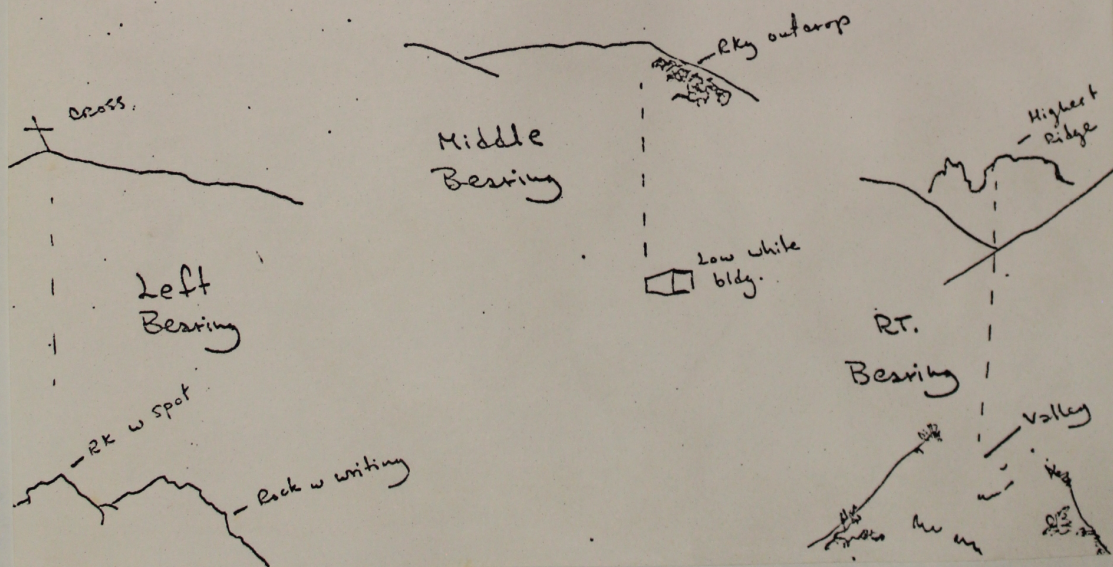 CROSS.
Left
Bearing
RK w spot
Rock w writing
Middle
Bearing
Rky outcrop
Low white
bldg.
Highest
Ridge
RT.
Bearing
Valley